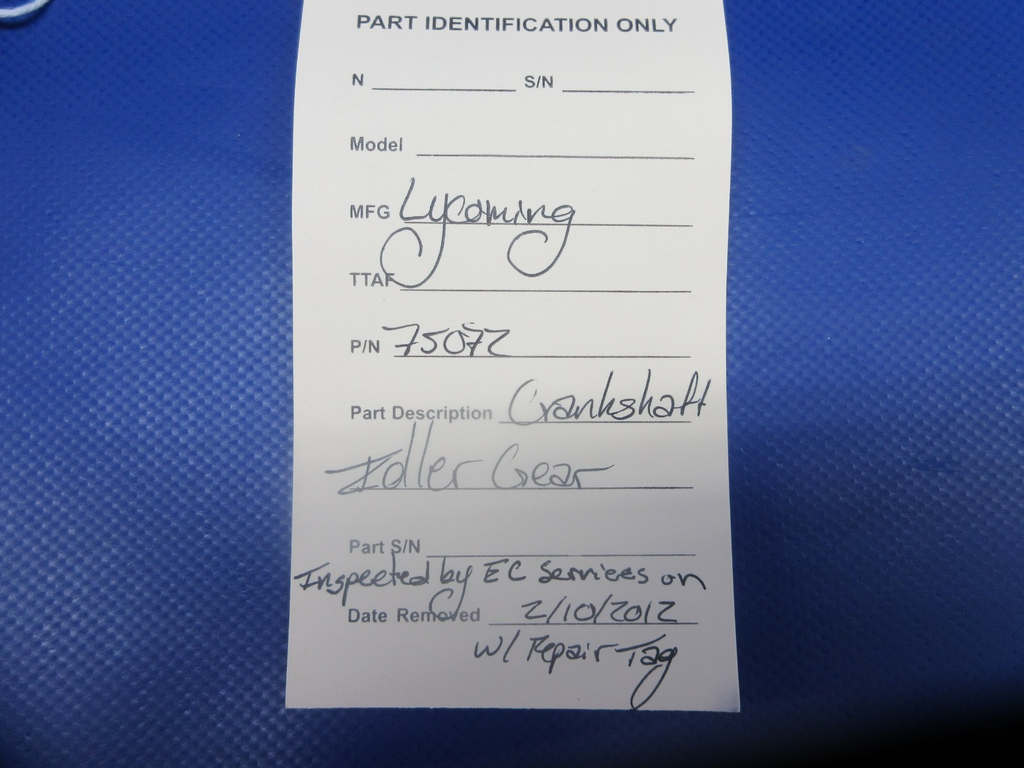 PART IDENTIFICATION ONLY
N S/N
Model
MFG Lycoming
TTAF
P/N 75072
Part Description Crankshaft
Idler Gear
Part S/N
Inspected by EC Services on
Date Removed 2/10/2012
w/ Repair Tag